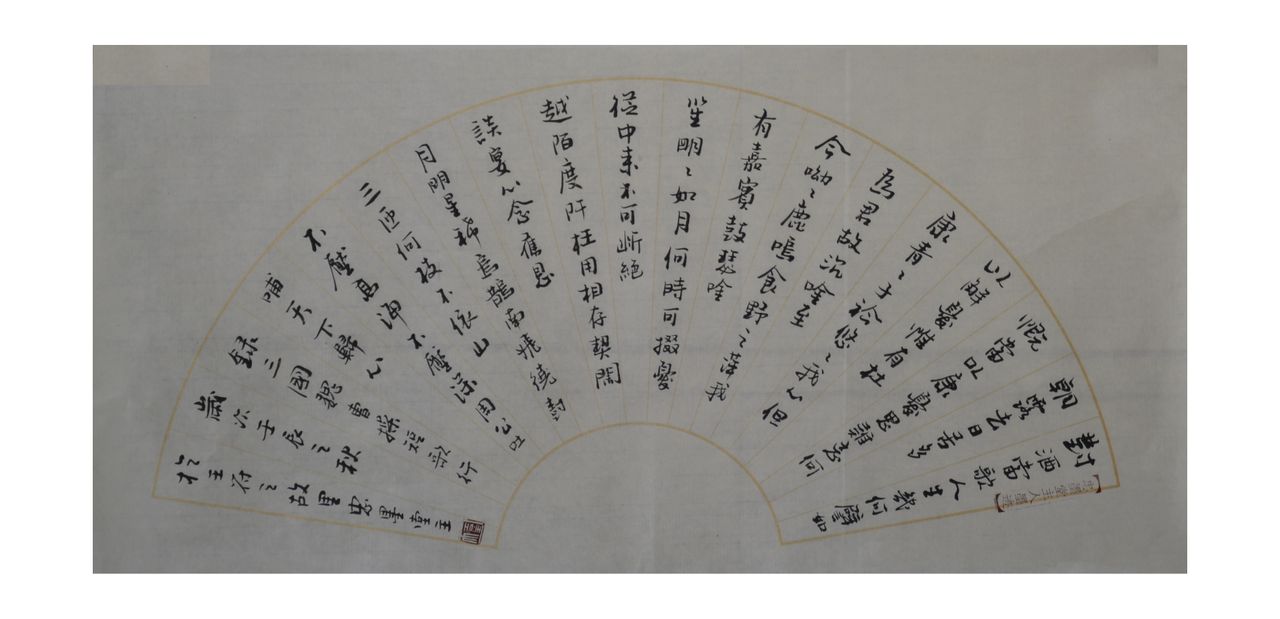 對酒當歌人生幾何譬如
朝露去日苦多
慨當以康憂思難忘何
以解憂惟有杜
康青〻子衿悠〻我心但
為君故沉唫至
今呦〻鹿鳴食野之蘋我
有嘉賓鼓瑟吹
笙明〻如月何時可掇憂
從中來不可斷絕
越陌度阡枉用相存契闊
談宴心念舊恩
月明星稀烏鵲南飛繞樹
三匝何枝不依山
不厭高海不厭深周公吐
哺天下歸心
錄三國魏曹操短歌行
歲次壬辰之秋
於王府之故里忠墨堂主